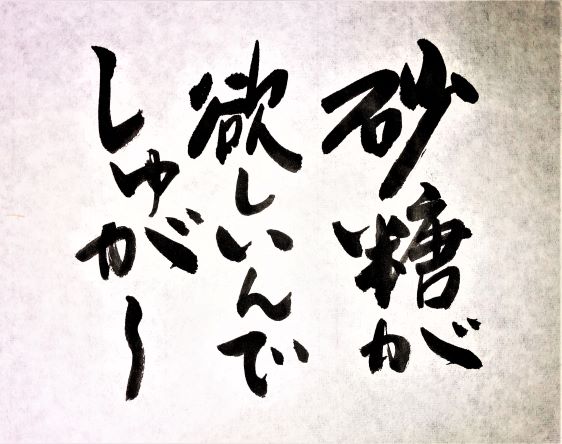 砂糖が
欲しいんで
しゅが〜